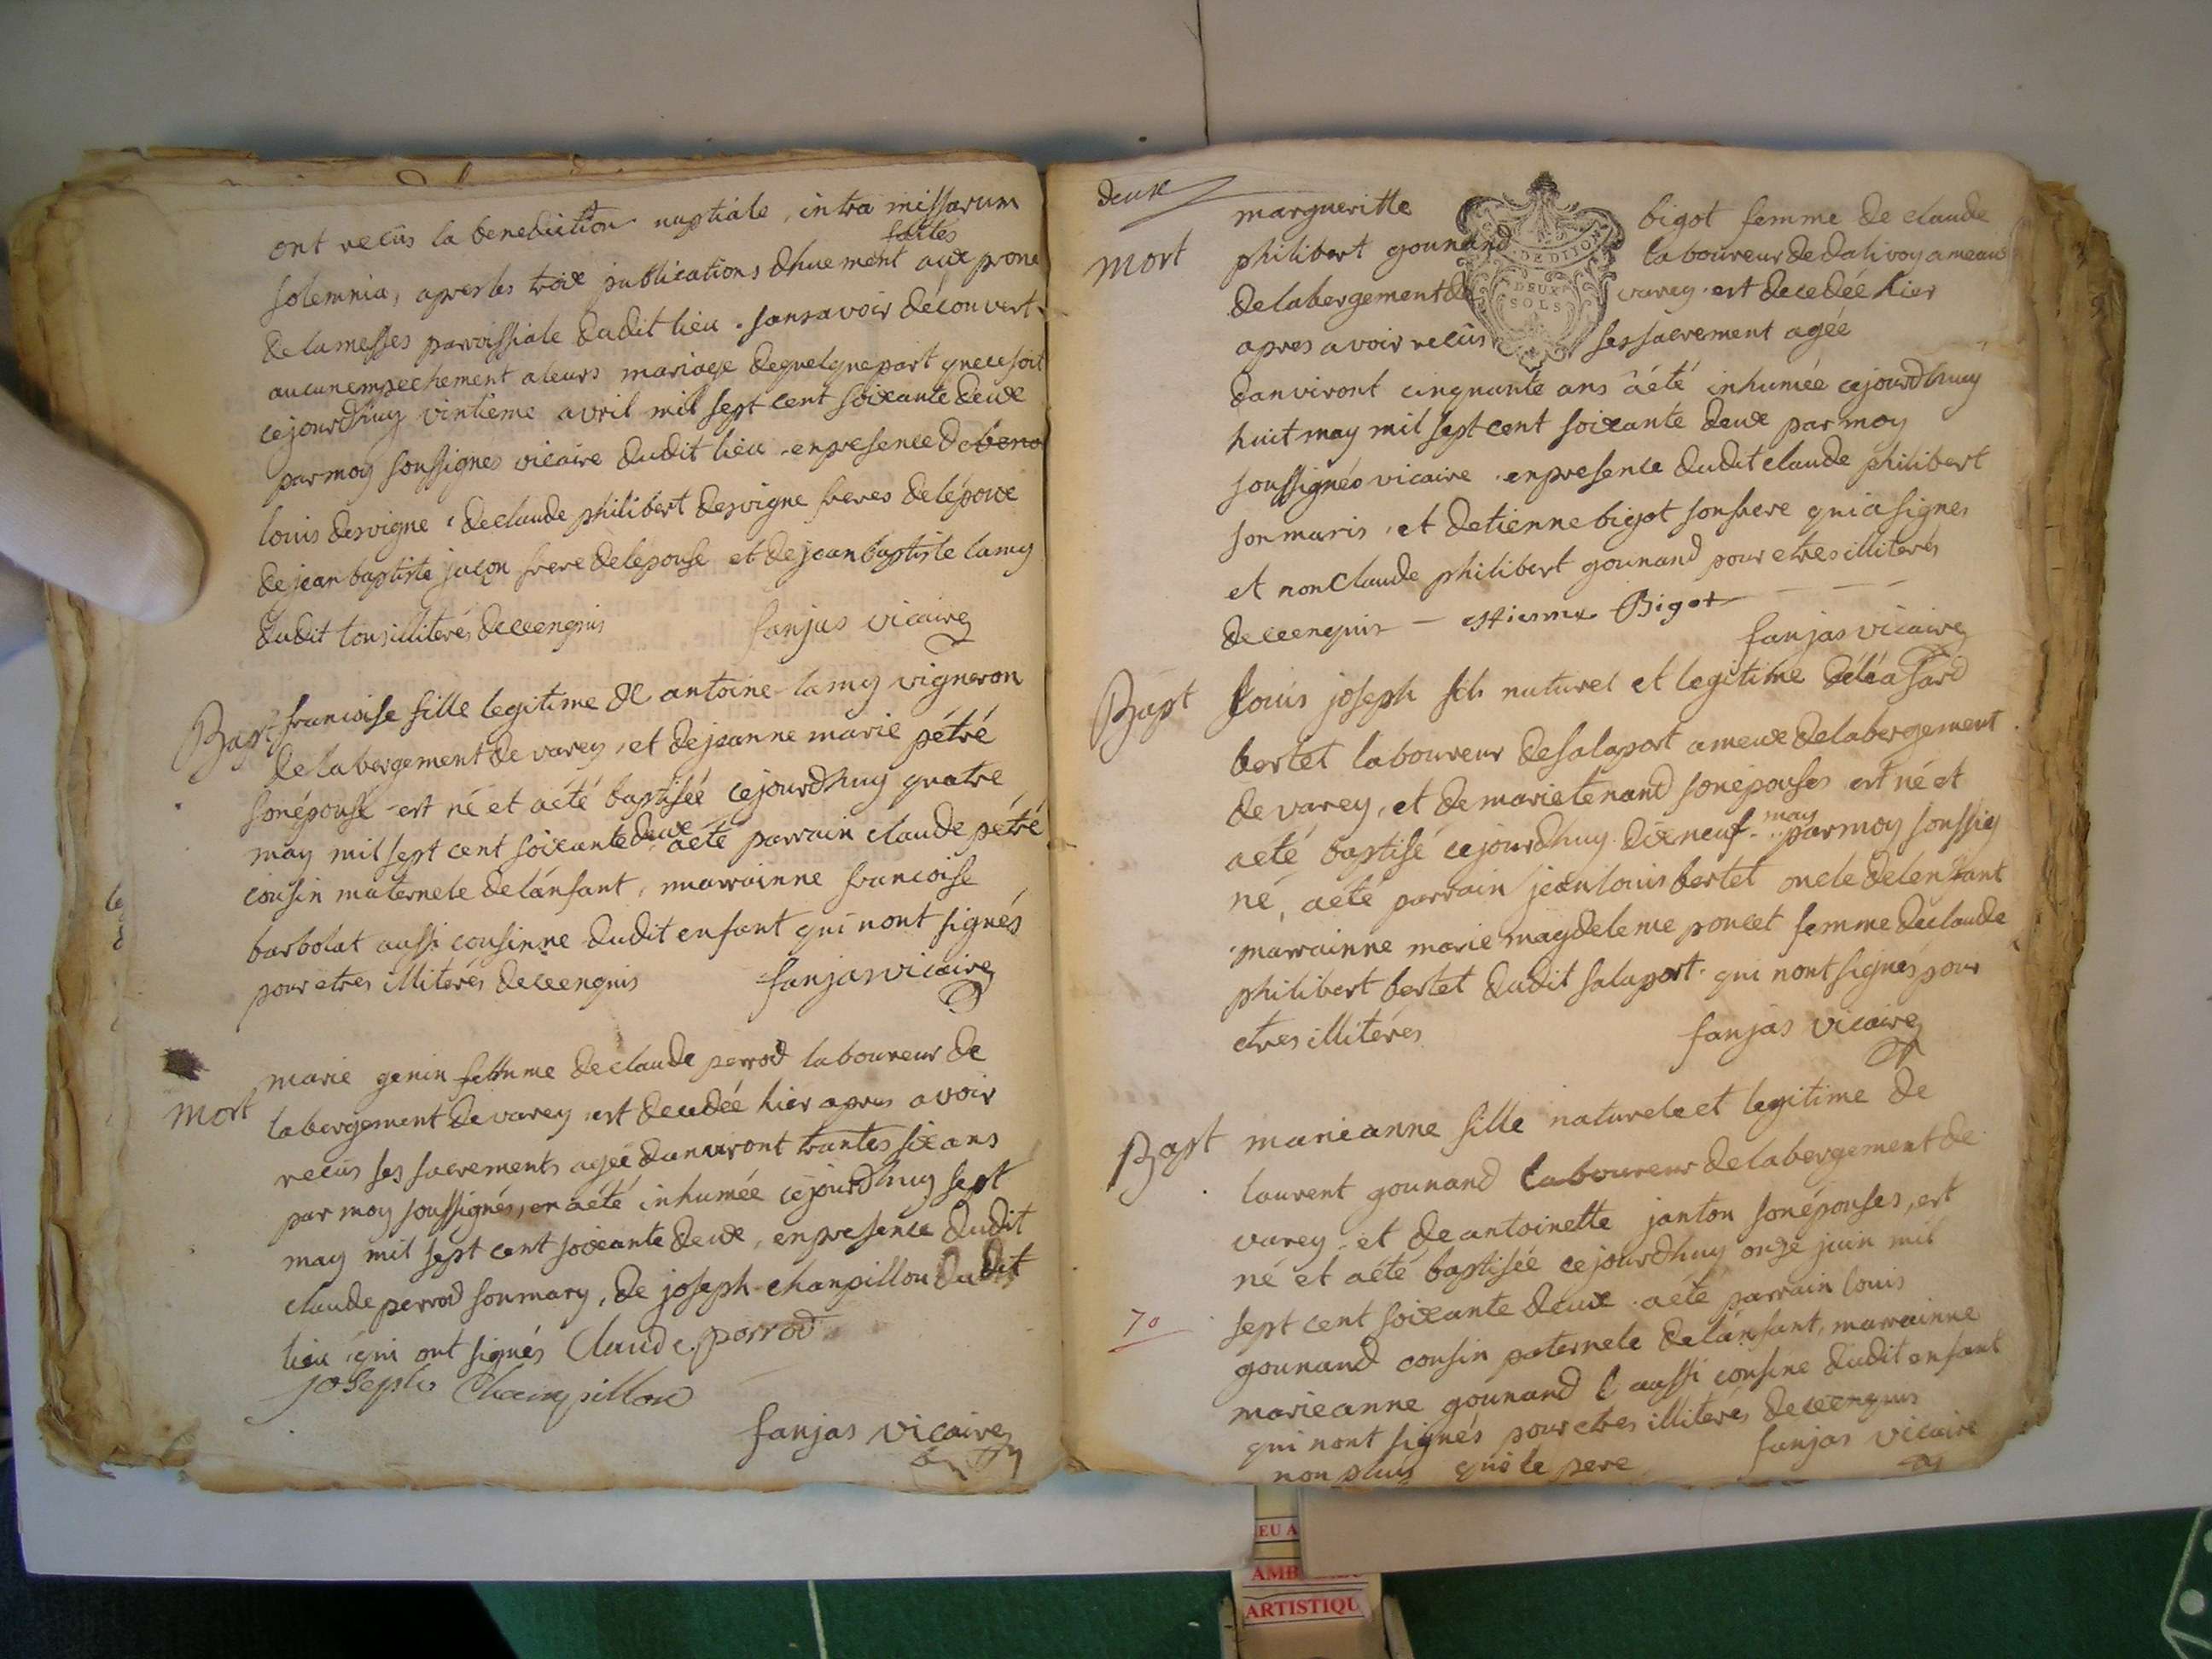 ont recûs la benediction nuptiale, intra missarum
faites
solemnia, apres les troix publications dhuement aux prone
de lamesses parroissiale dudit lieu . sans avoir découvert
aucun empechement a leurs mariage de quelque part que ce soit
cejourdhuy vintieme avril mil sept cent soixante deux
par moy soussignes vicaire dudit lieu . en presence de beno
louis desvigne . de claude philibert desvigne freres de lépoux
de jean baptiste jacon frere de lepouse et de jean baptiste lamy
dudit tous illiterés de ce enquis fanjas vicaire
Bapt francoise fille legitime de antoine lamy vigneron
de labergement de varey , et de jeanne marie pétré
son épouse - est né et aété baptisée cejourdhuy quatre
may mil sept cent soixante deux aété parrain claude pétré
cousin maternele de lánfant , marrainne francoise
barbolat aussi cousinne dudit enfant qui nont signés
pour etres illiterés de ce enquis fanjas vicaire
marie genin femme de claude perrod laboureur de
mort labergement de varey est decedée hier apres avoir
recûs ses sacrements agée danviront trantes six ans
par moy soussignés, en aété inhumée cejourdhuy sept
may mil sept cent soixante deux, en presence dudit
claude perrod son mary, de joseph chanpillon dudit
lieu qui ont signés Claude perrod
joseph Champillon
fanjas vicaire
deux
margueritte bigot femme de claude
mort philibert gounand laboureur de dalivoy ameaus
de labergement de varey . est decedée hier
apres avoir recûs ses sacrement agée
danviront cinquante ans aété inhumée cejourdhuy
huit may mil sept cent soixante deux par moy
soussignés vicaire . en presence dudit claude philibert
son maris , et detienne bigot son frere qui a signes
et non claude philibert gounand pour etres illiterés
de ce enquis - estienne Bigot
fanjas vicaire
DE DIJON
DEUX
SOLS
Bapt louis joseph fils naturel et legitime déléasard
bertet laboureur de salaport ameux de labergement
de varey, et de marie tenand son épouses est né et
aété baptisé cejourdhuy dix neuf may par moy soussig
né, aété parrain jean louis bertet oncle de lenfant
marrainne marie magdeleine poncet femme de claude
philibert bertet dudit salaport . qui nont signés pour
etres illiterés fanjas vicaire
Bapt marieanne fille naturele et legitime de
laurent gounand laboureur de labergement de
varey , et de antoinette janton son épouses, est
né et aété baptisée cejourdhuy onze juin mil
70 sept cent soixante deux . aété parrain louis
gounand cousin paternele de lánfant, marrainne
marieanne gounand aussi cousine dudit enfant
qui nont signés pour etres illiterés de ce enquis
non plus que le pere fanjas vicaire
EU A
AMB
ARTISTIQU